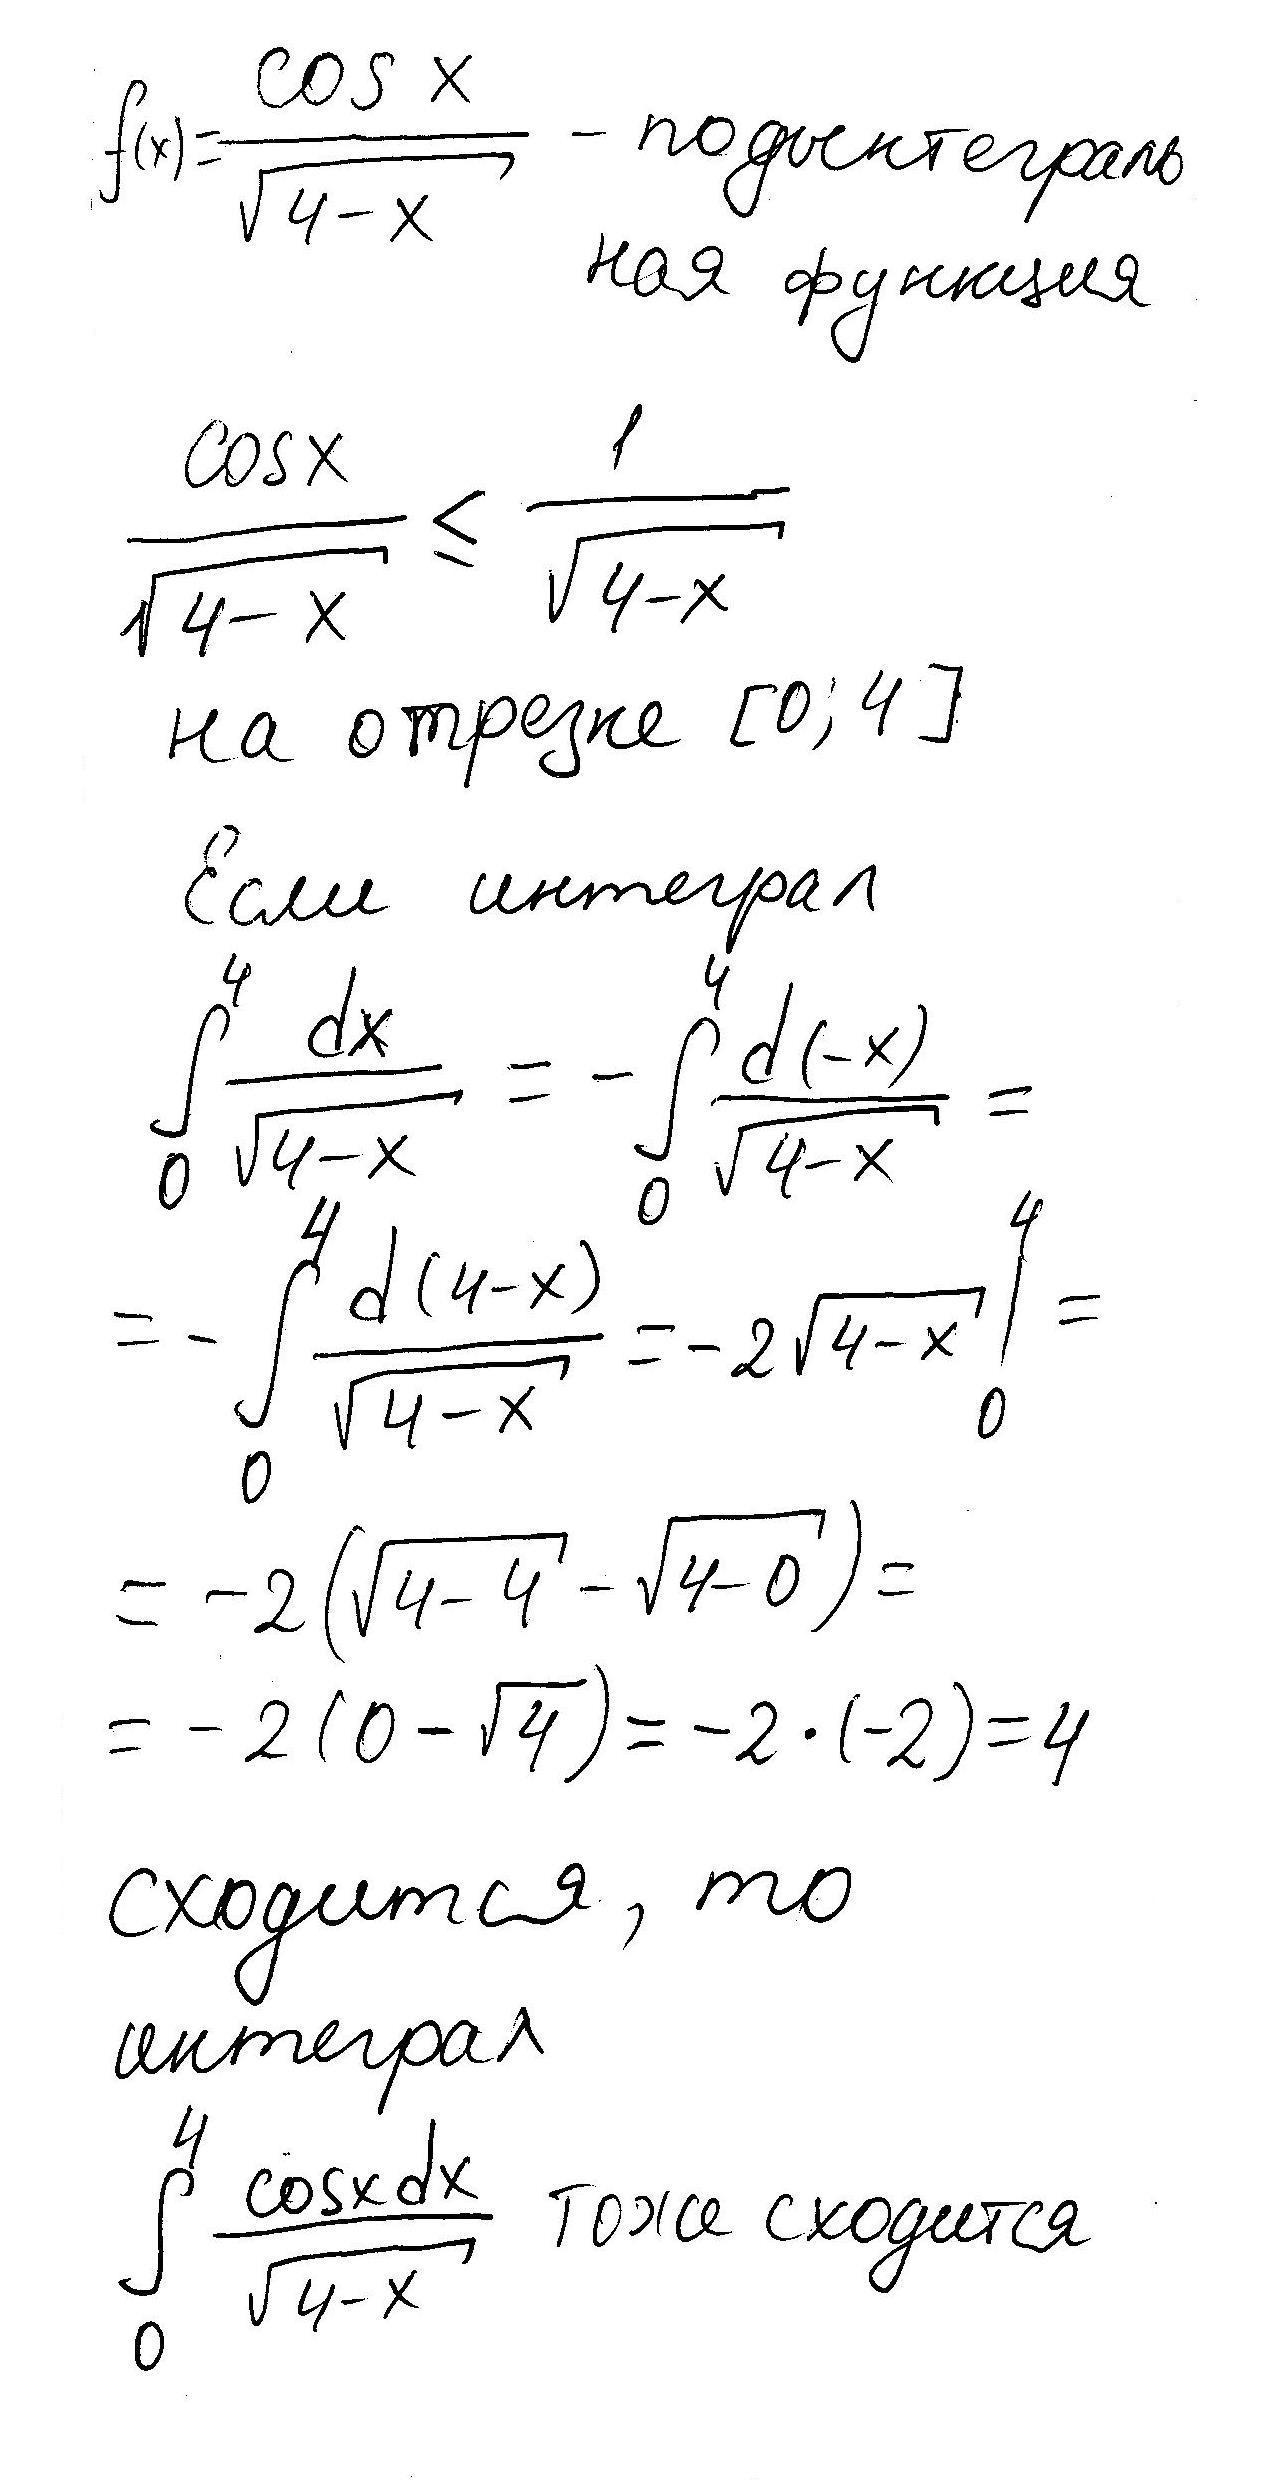 f(x) = cos x / √(4-x) - подынтеграль
ная функция
cos x / √(4-x) ≤ 1 / √(4-x)
на отрезке [0; 4]
Если интеграл
∫₀⁴ dx / √(4-x) = - ∫₀⁴ d(-x) / √(4-x) =
= - ∫₀⁴ d(4-x) / √(4-x) = -2√(4-x) |₀⁴ =
= -2(√(4-4) - √(4-0)) =
= -2(0 - √4) = -2·(-2) = 4
сходится, то
интеграл
∫₀⁴ cosx dx / √(4-x) тоже сходится